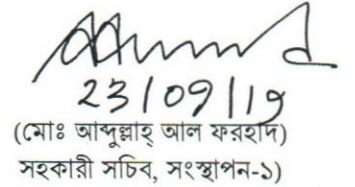 23/09/19
(মোঃ আব্দুল্লাহ্ আল ফরহাদ)
সহকারী সচিব, সংস্থাপন-১)